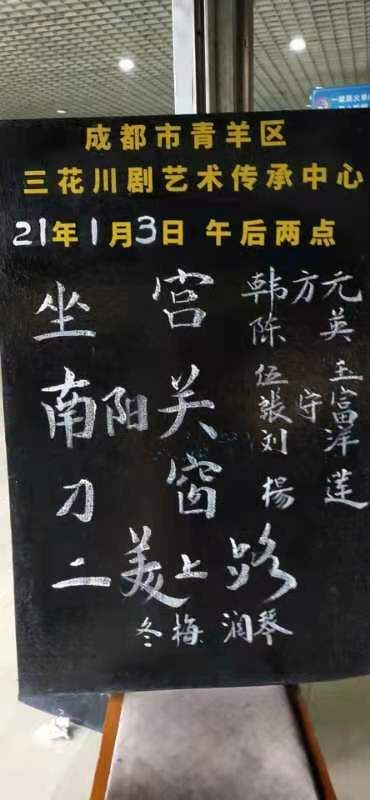 成都市青羊区
三花川剧艺术传承中心
21年1月3日 午后两点
坐 宫 韩方元
陈 英
南阳关 伍 王
張守富
刘 洋
刁 窗 楊 莲
二美上路
冬梅 润琴